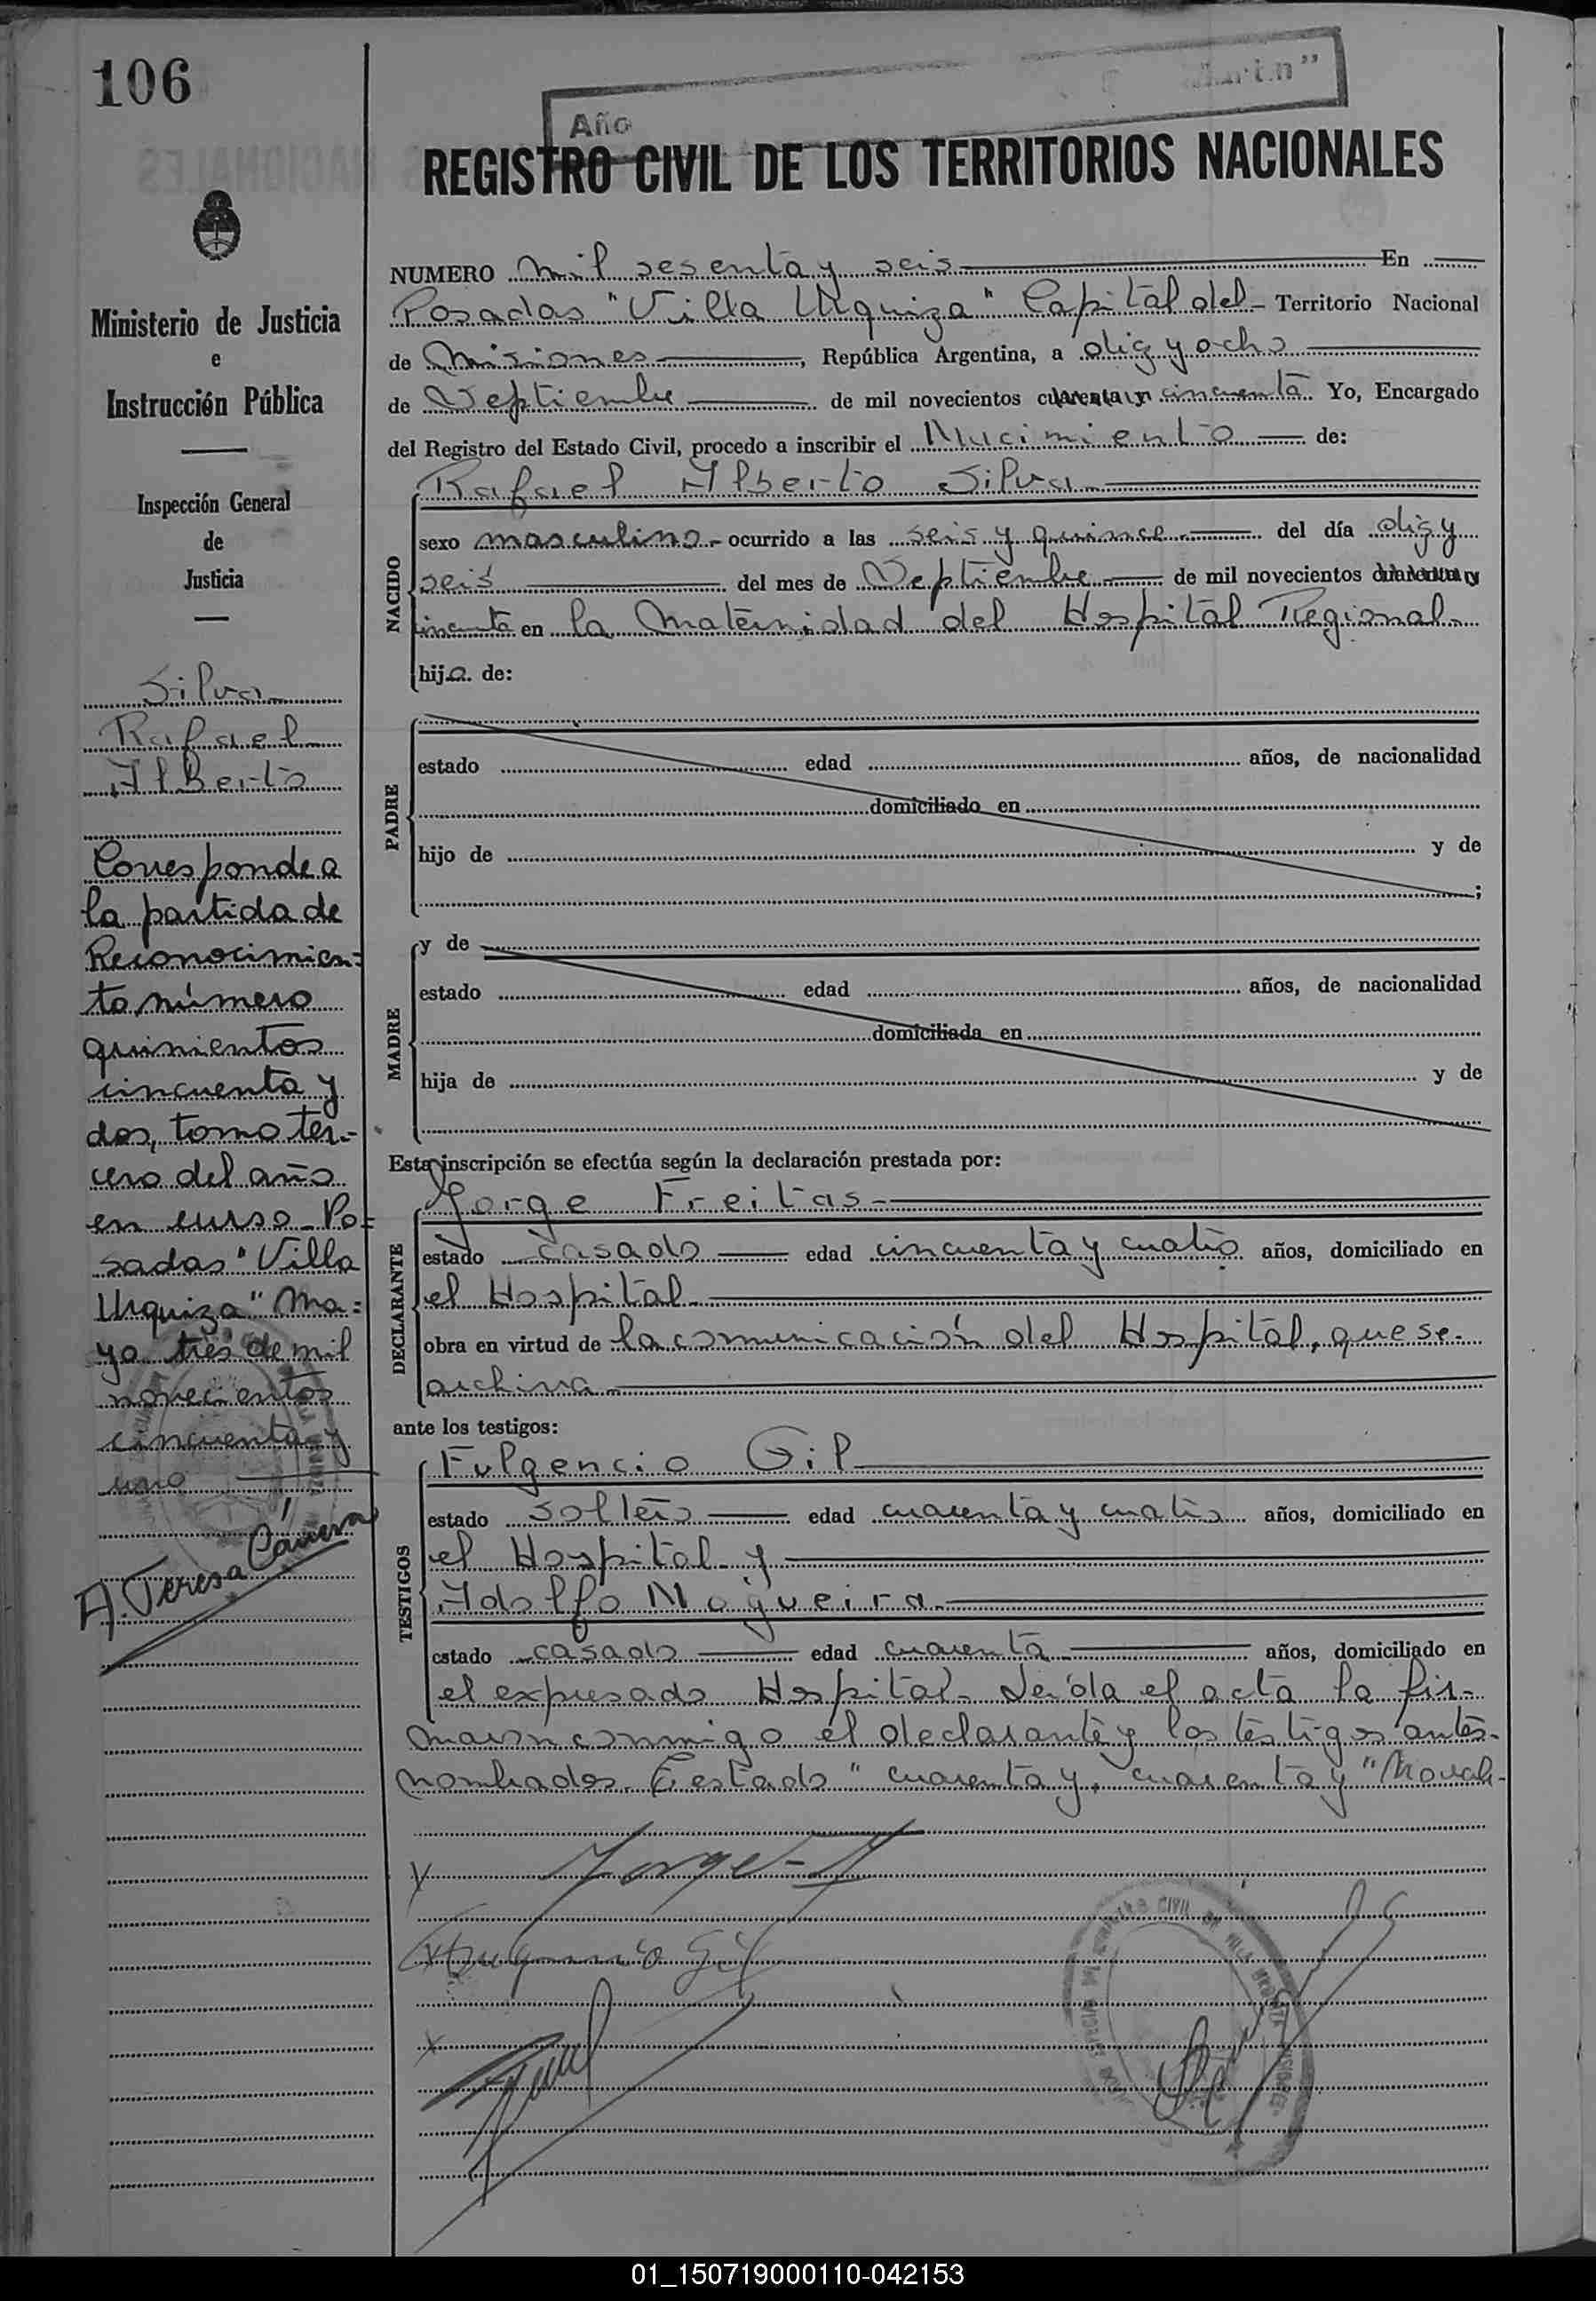 106
Año
REGISTRO CIVIL DE LOS TERRITORIOS NACIONALES
Ministerio de Justicia
e
Instrucción Pública
Inspección General
de
Justicia
Silva
Rafael
Alberto
Corresponde a
la partida de
Reconocimien=
to número
quinientos
cincuenta y
dos, tomo ter-
cero del año
en curso_ Po=
sadas "Villa
Urquiza" Ma=
yo tres de mil
novecientos
cincuenta y
uno
A. Teresa
NUMERO mil sesenta y seis En
Posadas "Villa Urquiza" Capital del Territorio Nacional
de Misiones, República Argentina, a diez y ocho
de Septiembre de mil novecientos cuarenta y cincuenta Yo, Encargado
del Registro del Estado Civil, procedo a inscribir el Nacimiento de:
NACIDO
Rafael Alberto Silva
sexo masculino ocurrido a las seis y quince del día diez y
seis del mes de Septiembre de mil novecientos cuarenta y
cincuenta en la Maternidad del Hospital Regional
hijo de:
PADRE
estado edad años, de nacionalidad
domiciliado en
hijo de y de
;
MADRE
y de
estado edad años, de nacionalidad
domiciliada en
hija de y de
Esta inscripción se efectúa según la declaración prestada por:
DECLARANTE
Jorge Freitas
estado casado edad cincuenta y cuatro años, domiciliado en
el Hospital
obra en virtud de la comunicación del Hospital, que se
archiva
ante los testigos:
TESTIGOS
Fulgencio Gil
estado soltero edad cuarenta y cuatro años, domiciliado en
el Hospital y
Adolfo Nogueira
estado casado edad cuarenta años, domiciliado en
el expresado Hospital. Leída el acta la fir-
maron conmigo el declarante y los testigos antes
nombrados. Testado "cuarenta y, cuarenta y" No vale
Fulgencio Gil
01_150719000110-042153